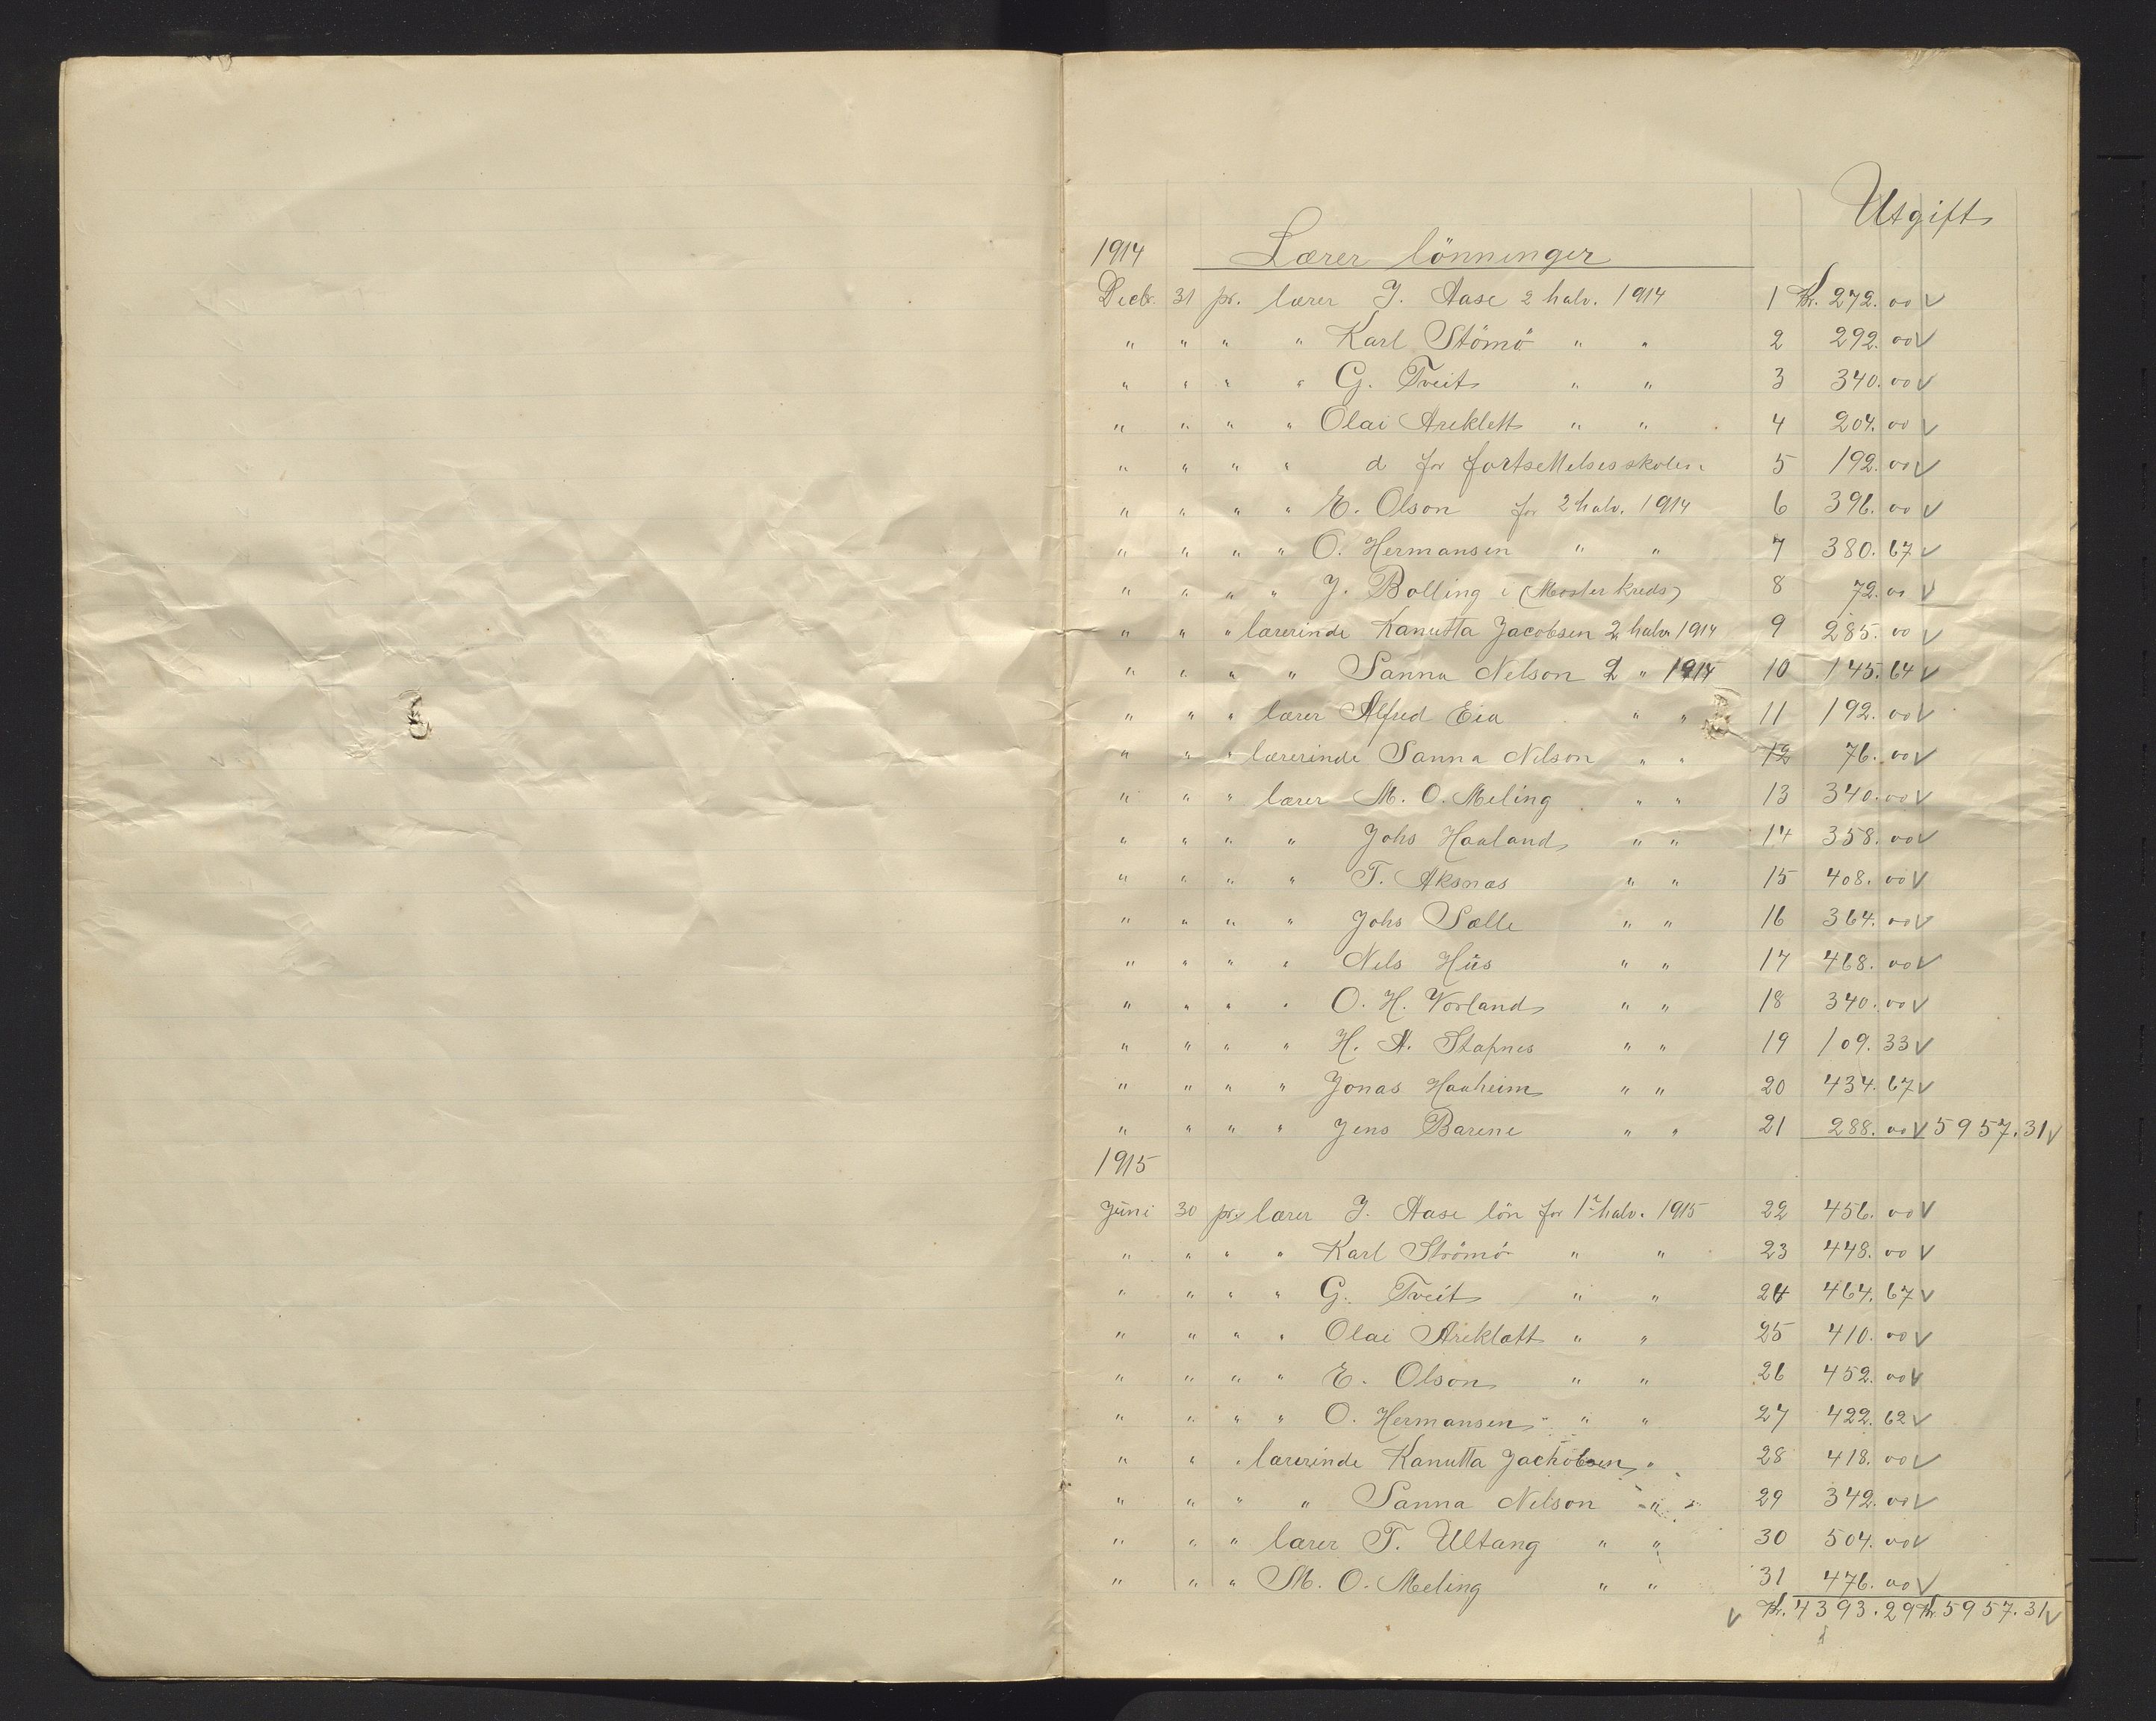 Utgift
1914 Lærer lönninger
Decbr. 31 pr. lærer J. Aase 2 halv. 1914 1 Kr. 272. 00 V
" " " " Karl Stömö " " 2 292. 00 V
" " " " G. Tveit " " 3 340. 00 V
" " " " Olai Areklett " " 4 204. 00 V
" " " " d for fortsettelsesskolen 5 192. 00 V
" " " " E. Olson for 2 halv. 1914 6 396. 00 V
" " " " O. Hermansen " " 7 380. 67 V
" " " " J. Bolling i (Moster kreds) 8 72. 00 V
" " " lærerinde Kanutta Jacobsen 2 halv 1914 9 285. 00 V
" " " " Sanna Nelson 2 " 1914 10 145. 64 V
" " " lærer Alfred Eia " " 11 192. 00 V
" " " lærerinde Sanna Nilson " " 12 76. 00 V
" " " lærer M. O. Meling " " 13 340. 00 V
" " " " Johs Haaland " " 14 358. 00 V
" " " " T. Aksnæs " " 15 408. 00 V
" " " " Johs Sælle " " 16 364. 00 V
" " " " Nils Hŭs " " 17 468. 00 V
" " " " O. H. Vorland " " 18 340. 00 V
" " " " H. A. Stapnes " " 19 109. 33 V
" " " " Jonas Haaheim " " 20 434. 67 V
" " " " Jens Barene " " 21 288. 00 V 5957. 31 V
1915
Jŭni 30 pr. lærer J. Aase lön for 1ste halv. 1915 22 456. 00 V
" " " " Karl Strömö " " 23 448. 00 V
" " " " G. Tveit " " 24 464. 67 V
" " " " Olai Areklett " " 25 410. 00 V
" " " " E. Olson " " 26 452. 00 V
" " " " O. Hermansen " " 27 422. 62 V
" " " lærerinde Kanutta Jachobsen " 28 418. 00 V
" " " " Sanna Nelson " " 29 342. 00 V
" " " lærer T. Ultang " " 30 504. 00 V
" " " M. O. Meling " " 31 476. 00 V
V Kr. 4393. 29 Kr. 5957. 31 V